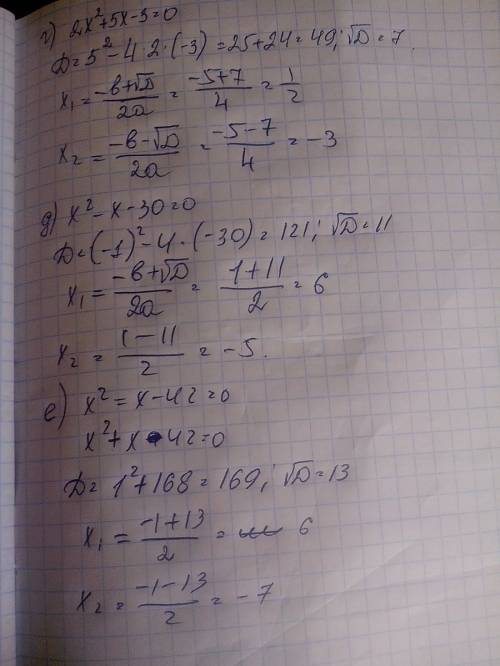 г) 2x²+5x-3=0
D=5²-4·2·(-3)=25+24=49; √D=7.
x₁=(-в+√D)/2a=(-5+7)/4=1/2
x₂=(-в-√D)/2a=(-5-7)/4=-3
д) x²-x-30=0
D=(-1)²-4·(-30)=121; √D=11
x₁=(-в+√D)/2a=(1+11)/2=6
x₂=(1-11)/2=-5.
е) x²=x-42=0
x²+x-42=0
D=1²+168=169; √D=13
x₁=(-1+13)/2=6
x₂=(-1-13)/2=-7